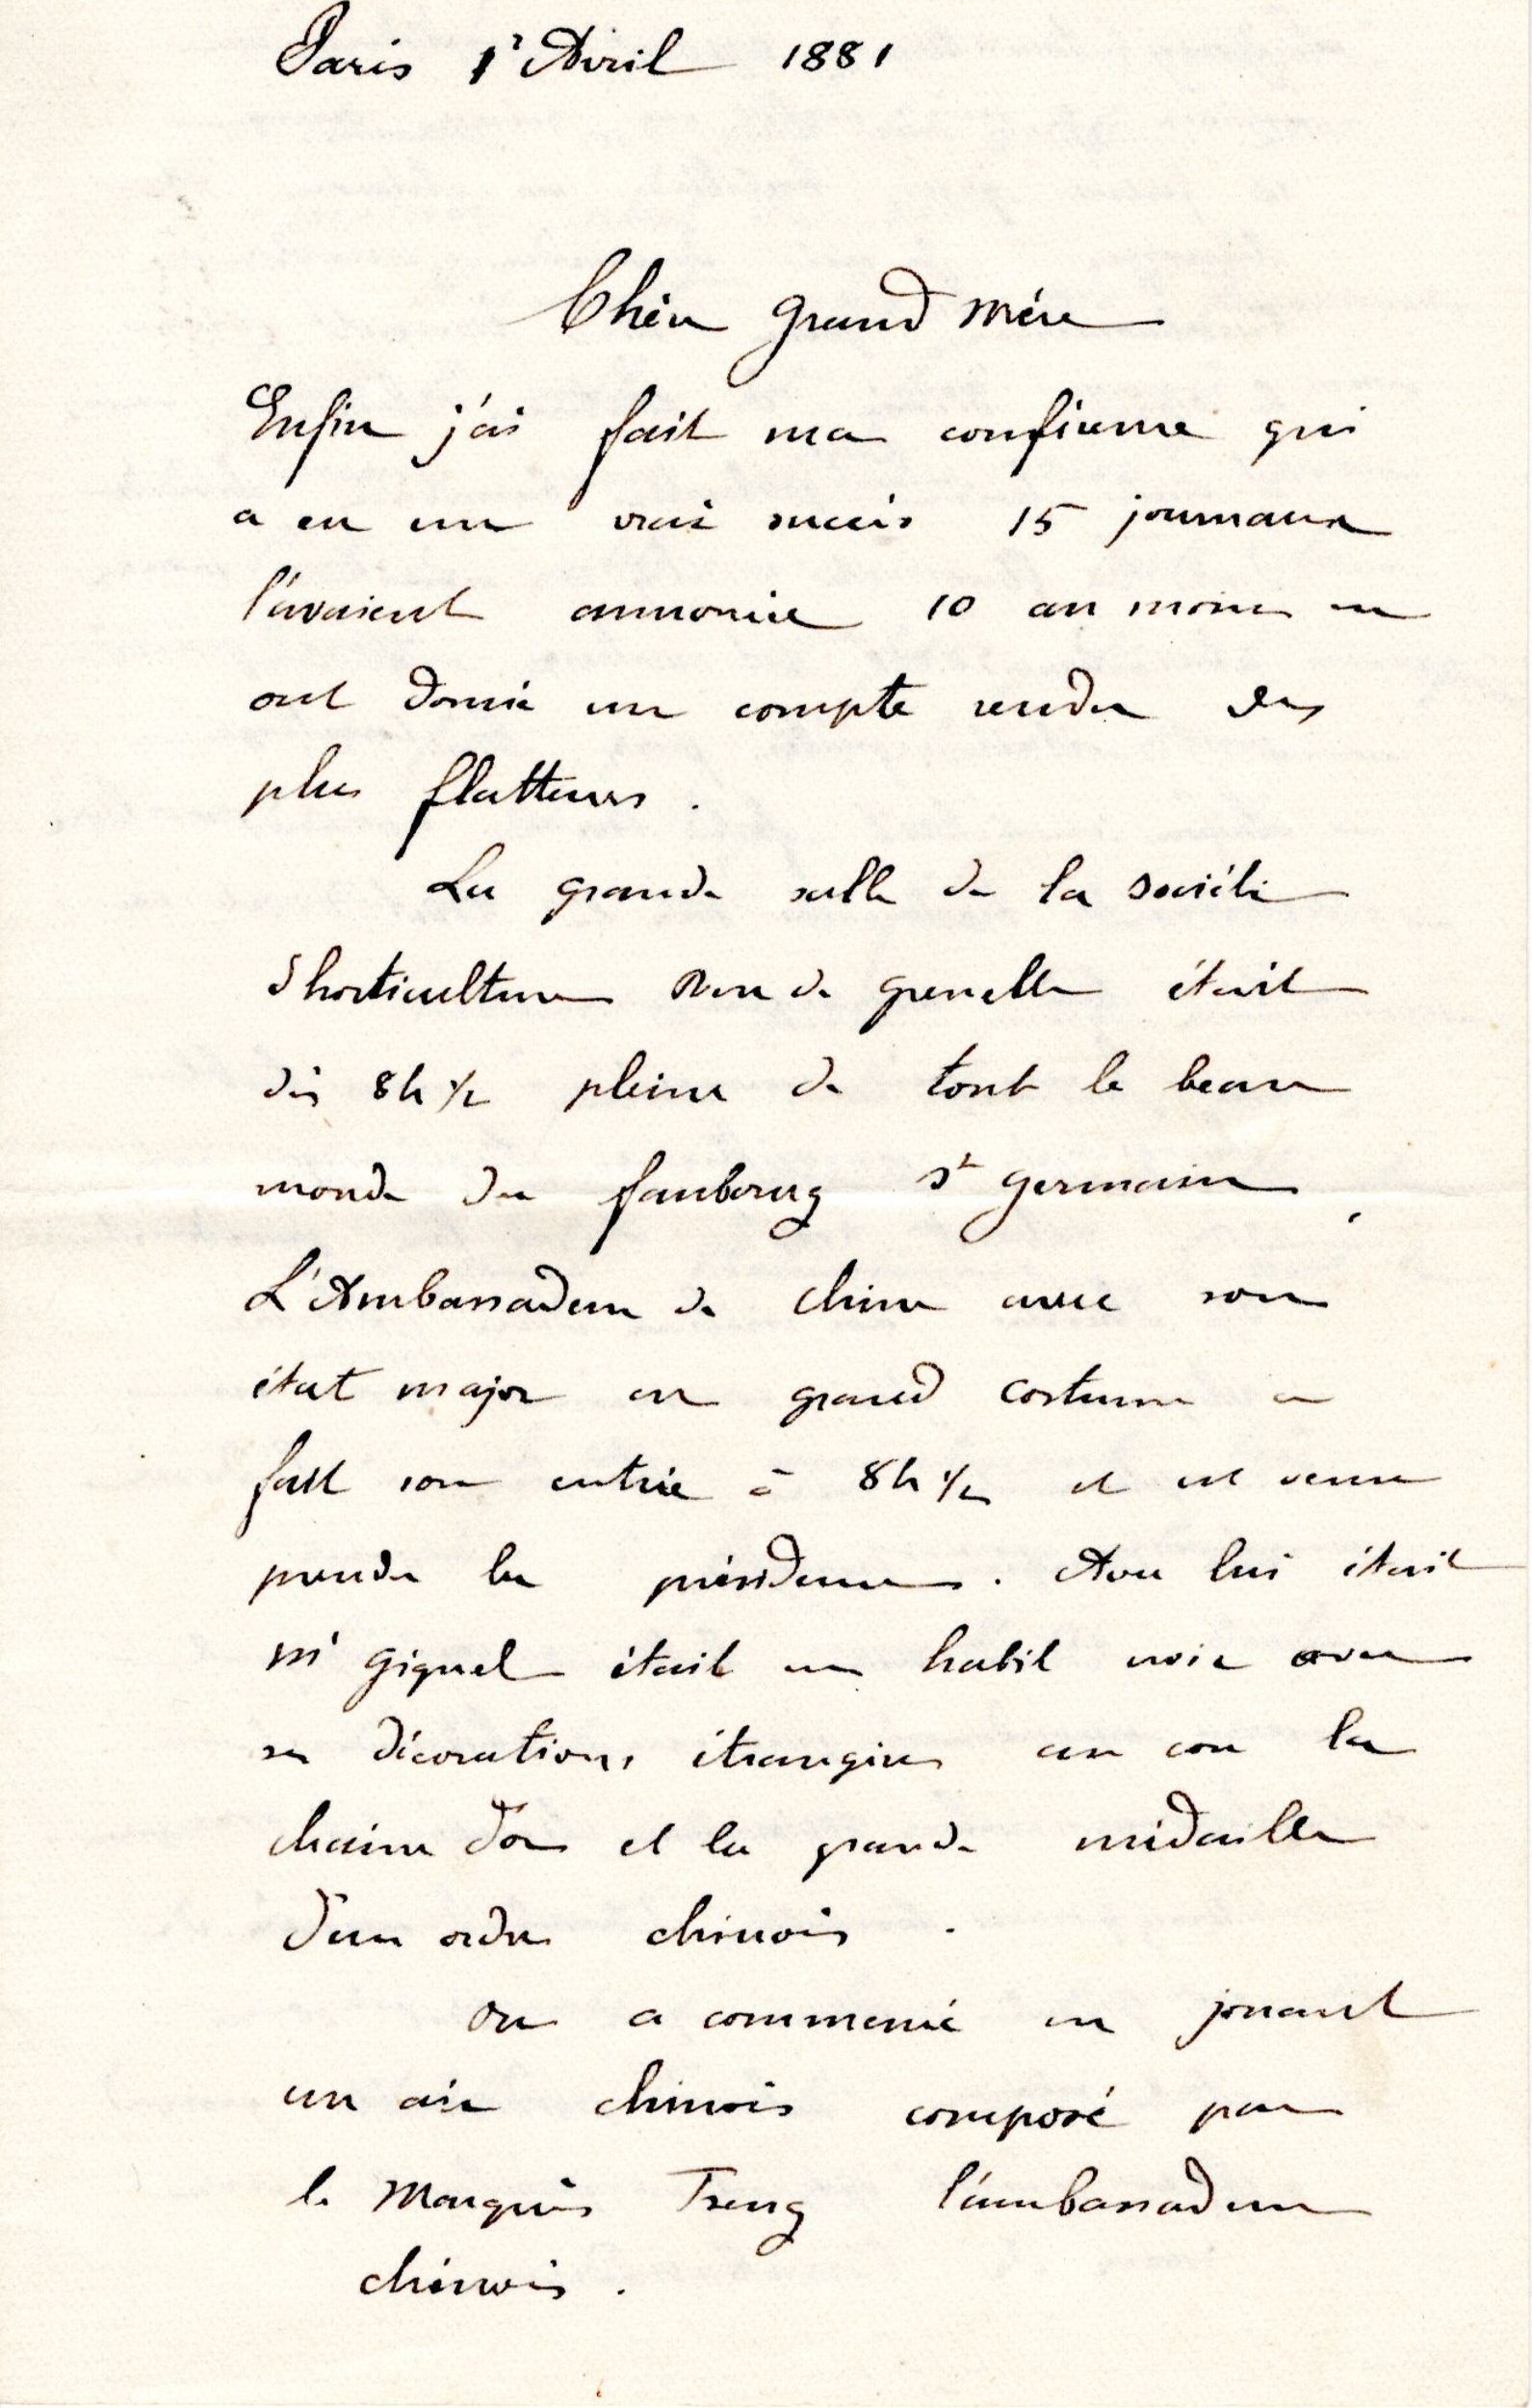 Paris 1r Avril 1881
Chère grand mère
Enfin j'ai fait ma conférence qui
a eu un vrai succès 15 journaux
l'avaient annoncée 10 au moins en
ont donné un compte rendu des
plus flatteurs.
La grande salle de la société
d'horticulture rue de grenelle était
dès 8h 1/2 pleine de tout le beau
monde du faubourg St germain,
L'Ambassadeur de chine avec son
état major en grand costume a
fait son entrée à 8h 1/2 et est venu
prendre la présidence. Avec lui était
Mr giquel était en habit noir avec
ses décorations étrangères au cou la
chaine d'or et la grande médaille
d'un ordre chinois.
On a commencé en jouant
un air chinois composé par
le Marquis Tseng l'ambassadeur
chinois.